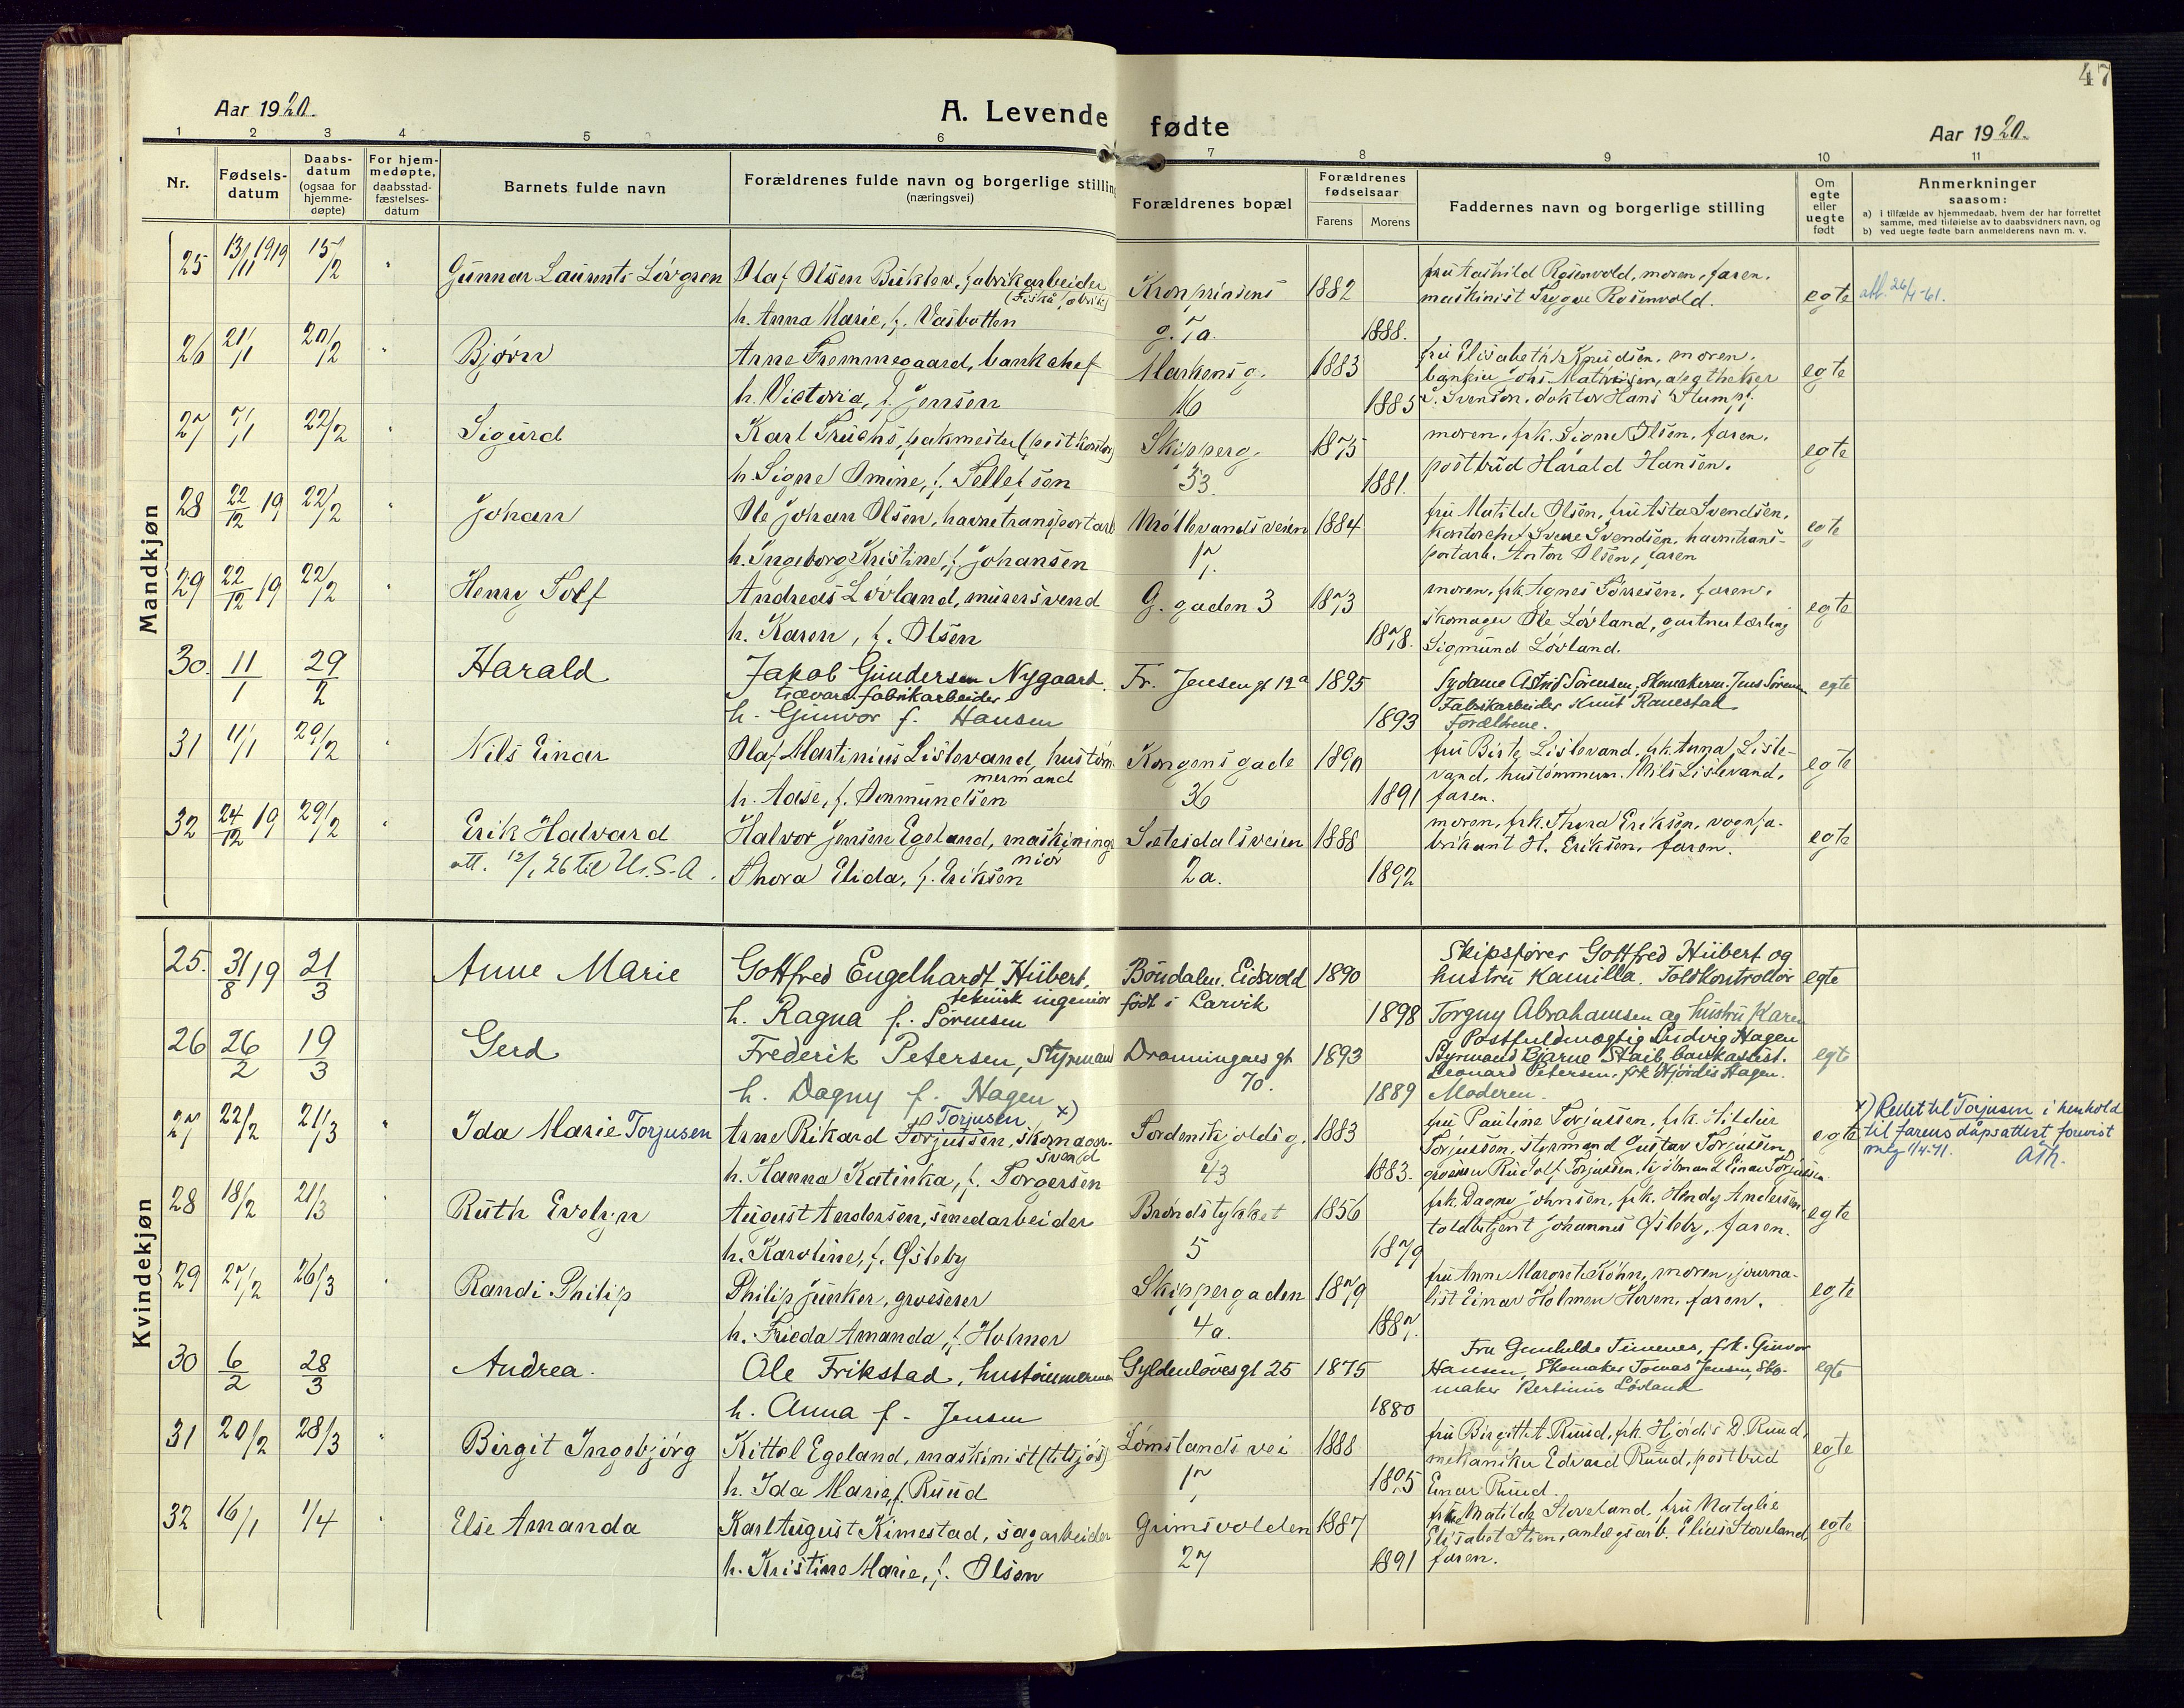 47
Aar 1920.
A. Levende fødte
Aar 1920.
1 2 3 4 5 6 7 8 9 10 11
Nr.
Fødsels-
datum
Daabs-
datum
(ogsaa for
hjemme-
døpte)
For hjem-
medøpte,
daabsstad-
fæstelses-
datum
Barnets fulde navn
Forældrenes fulde navn og borgerlige stilling
(næringsvei)
Forældrenes bopæl
Forældrenes
fødselsaar
Farens Morens
Faddernes navn og borgerlige stilling
Om
egte
eller
uegte
født
Anmerkninger
saasom:
a) I tilfælde av hjemmedaab, hvem der har forrettet
samme, med tilføielse av to daabsvidners navn, og
b) ved uegte fødte barn anmelderens navn m. v.
Mandkjøn
25 13/11 1919 15/2 " Gunnar Laurents Løvgren Olaf Olsen, fabrikarbeider
(Fiskå fabrik)
h. Anna Marie, f. Vasbotten
Kronprinsens
g. 7a.
1882
1888.
fru Aashild Rosenvold, moren, faren,
maskinist Trygve Rosenvold.
egte
att. 26/4-61.
26 21/1 20/2 " Bjørn Arne Fremmegaard, bankchef
h. Victoria, f. Jensen
Markensg.
16
1883
1885
fru Elisabeth Knudsen, moren,
bankier Johs Mathisen, apotheker
Svenson, doktor Hans Stumpf.
egte
27 7/1 22/2 " Sigurd Karl Fuchs, pakmester (postkontor)
h. Signe Omine, f. Tellefsen
Skipperg.
53.
1875
1881.
moren, frk. Signe Olsen, faren,
postbud Harald Hansen.
egte
28 22/12 19 22/2 " Johan Ole Johan Olsen, havnetransportarb
h. Ingeborg Kristine, f. Johansen
17.
1884
fru Matilde Olsen, fru Asta Svendsen,
kontorchef Svendsen, havnetrans-
portarb. Anton Olsen, faren
egte
29 22/12 19 22/2 " Henry Rolf Andreas Løvland, murersvend
h. Karen, f. Olsen
G. gaden 3
1873
1878.
moren, frk. Agnes Tørresen, faren,
skomager Ole Løvland, gartnerlærling
Sigmund Løvland.
egte
30. 11/1 29/2 Harald Jakob Gundersen Nygaard.
trævarefabrikarbeider
h. Gunvor f. Hansen
Fr. Jensensgt 12a
1895
1893
Sydame Astrid Sørensen, Skomakerm. Jens Sørensen
Fabrikarbeider Knut Ranestad
Forældrene.
egte
31 11/1 29/2 " Nils Einar Olaf Martinius Listevand, hustøm-
mermand
h. Aase, f. Osmundsen
Kongensgade
36
1890
1891
fru Birte Listevand, frk. Anna Liste-
vand, hustømmerm. Nils Listevand,
faren.
egte
32 24/12 19 29/2 " Erik Halvard Halvor Jensen Egeland, maskininge-
niør
att. 12/1 26 til U.S.A. Thora Elida, f. Eriksen
Setesdalsveien
2a.
1888
1892
moren, frk. Thora Eriksen, vognfa-
brikant H. Eriksen, faren.
egte
Kvindekjøn
25. 31/8 19 21/3 " Anne Marie Gottfred Engelhardt Hübert,
teknisk ingeniør
h. Ragna f. Sørensen
Bøndalen, Eidsvold
født i Larvik
1890
1898
Skipsfører Gottfred Hübert og
hustru Kamilla. Toldkontrollør
Torguy Abrahamsen og hustru Karen
egte
26 26/2 19/3 Gerd Frederik Petersen, Styrmand
h. Dagny f. Hagen
Dronningensgt
70.
1893
1889
Postfuldmægtig Ludvig Hagen
Styrmand Bjarne Staib, bankassist.
Leonard Petersen, frk Hjørdis Hagen.
Moderen.
egte
27 22/2 21/3 " Ida Marie Torjusen Arne Rikard Torjussen, skomager-
Torjusen x)
svend
h. Hanna Katinka, f. Torgersen
Tordenskjoldsg.
43
1883
1883.
fru Pauline Torjussen, frk. Hildur
Torjussen, styrmand Gustav Torjussen,
grosserer Rudolf Torjussen, sjømand Einar Torjussen
egte
x) Rettet til Torjusen i henhold
til farens dåpsattest forevist
meg 1/4-41. Ath.
28 18/2 21/3 Ruth Evelyn August Andersen, smedarbeider
h. Karoline, f. Østeby
Brøndstykket
5
1856
1879
frk. Dagny Johnsen, frk. Hendy Andersen
toldbetjent Johannes Østeby, faren.
egte
29 27/2 26/3 " Randi Philip Philip Junker, grosserer
h. Frieda Amanda, f. Holmer
Skippergaden
4a.
1879
1887.
fru Anne Margrete Köhn, moren, journa-
list Einar Holmer Hoven, faren.
egte
30 6/2 28/3 Andrea. Ole Frikstad, hustømmerman
h. Anna f. Jensen
Gyldenløvesgt 25
1875
1880
Fru Gunhilde Timenes, frk. Gunvor
Hansen, Skomaker Tomas Jensen, Sko-
maker Bertinius Løvland
egte
31 20/2 28/3 " Birgit Ingebjørg Kittel Egeland, maskinist (tilsjøs)
h. Ida Marie, f. Ruud
Lømslands vei
17
1888
1895
fru Birgitte Ruud, frk. Hjørdis D. Ruud,
mekaniker Edvard Ruud, postbud
Einar Ruud.
egte
32 16/1 1/4 " Else Amanda Karl August Kimestad, sagarbeider
h. Kristine Marie, f. Olsen
Grimsvolden
27
1887
1891
frk Matilde Stoveland, fru Natalie
Elisabet Stien, anlægsarb. Elias Stoveland,
faren.
egte